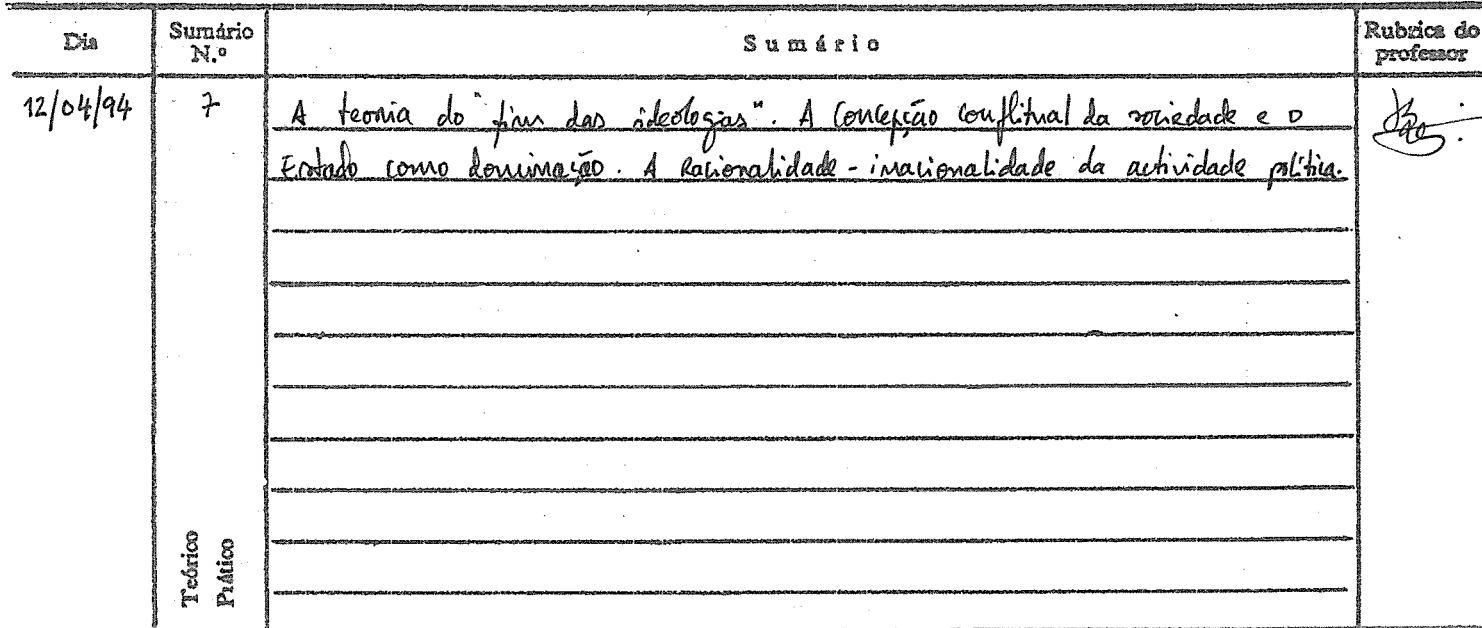 Dia
Sumário
N.º
Sumário
Rubrica do
professor
12/04/94
7
A teoria do "fim das ideologias". A Concepção conflitual da sociedade e o
Estado como dominação. A Racionalidade - irracionalidade da actividade política.
Teórico
Prático